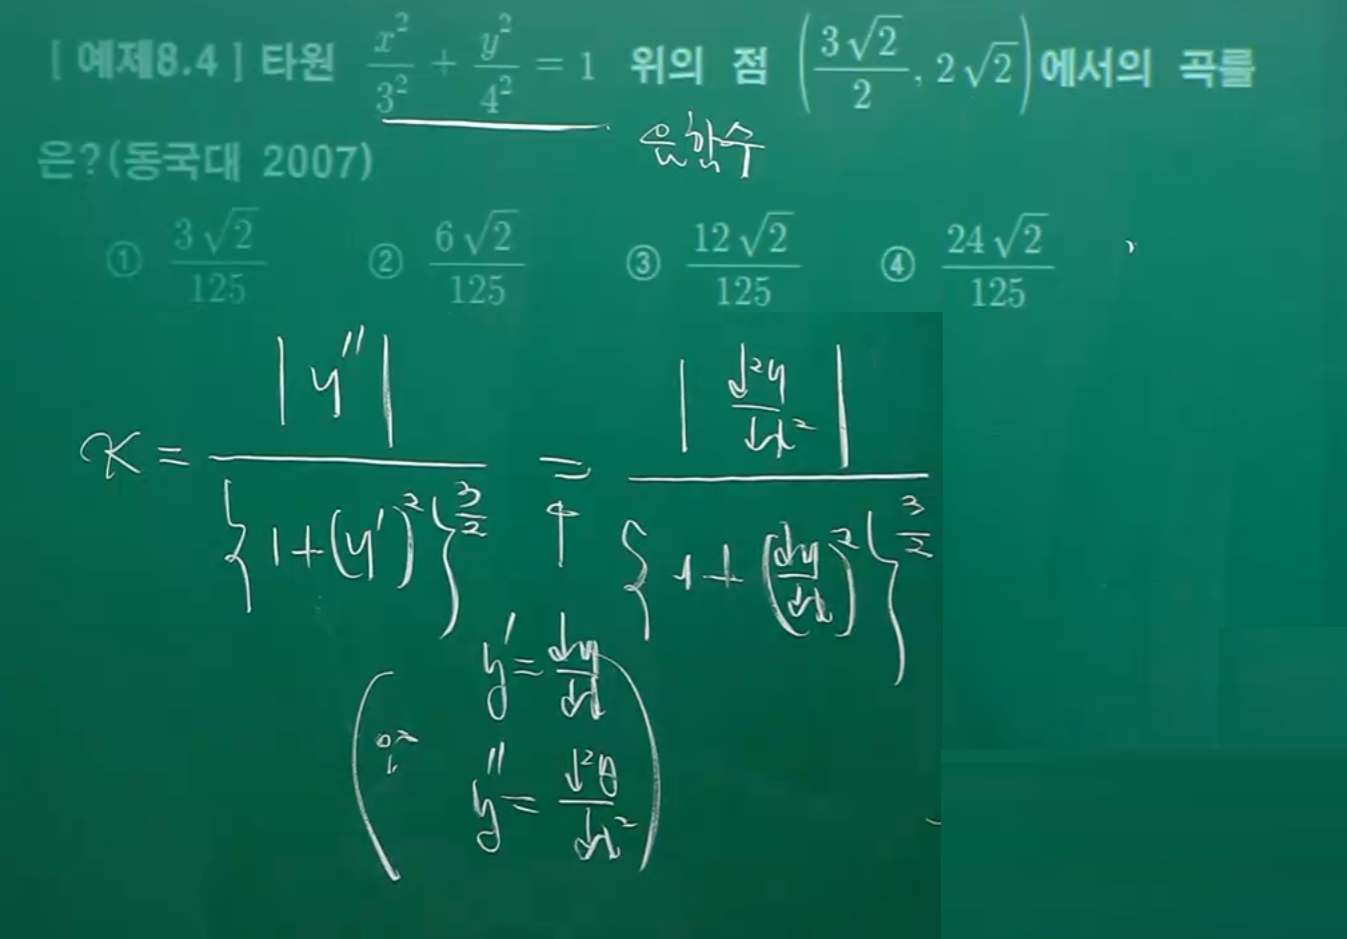 [ 예제8.4 ] 타원 x²/3² + y²/4² = 1 위의 점 (3√2/2, 2√2)에서의 곡률
은?(동국대 2007)
음함수
① 3√2/125 ② 6√2/125 ③ 12√2/125 ④ 24√2/125
κ = |y''| / {1+(y')²}^(3/2) = |d²y/dx²| / {1+(dy/dx)²}^(3/2)
↑
y' = dy/dx
y'' = d²θ/dx²